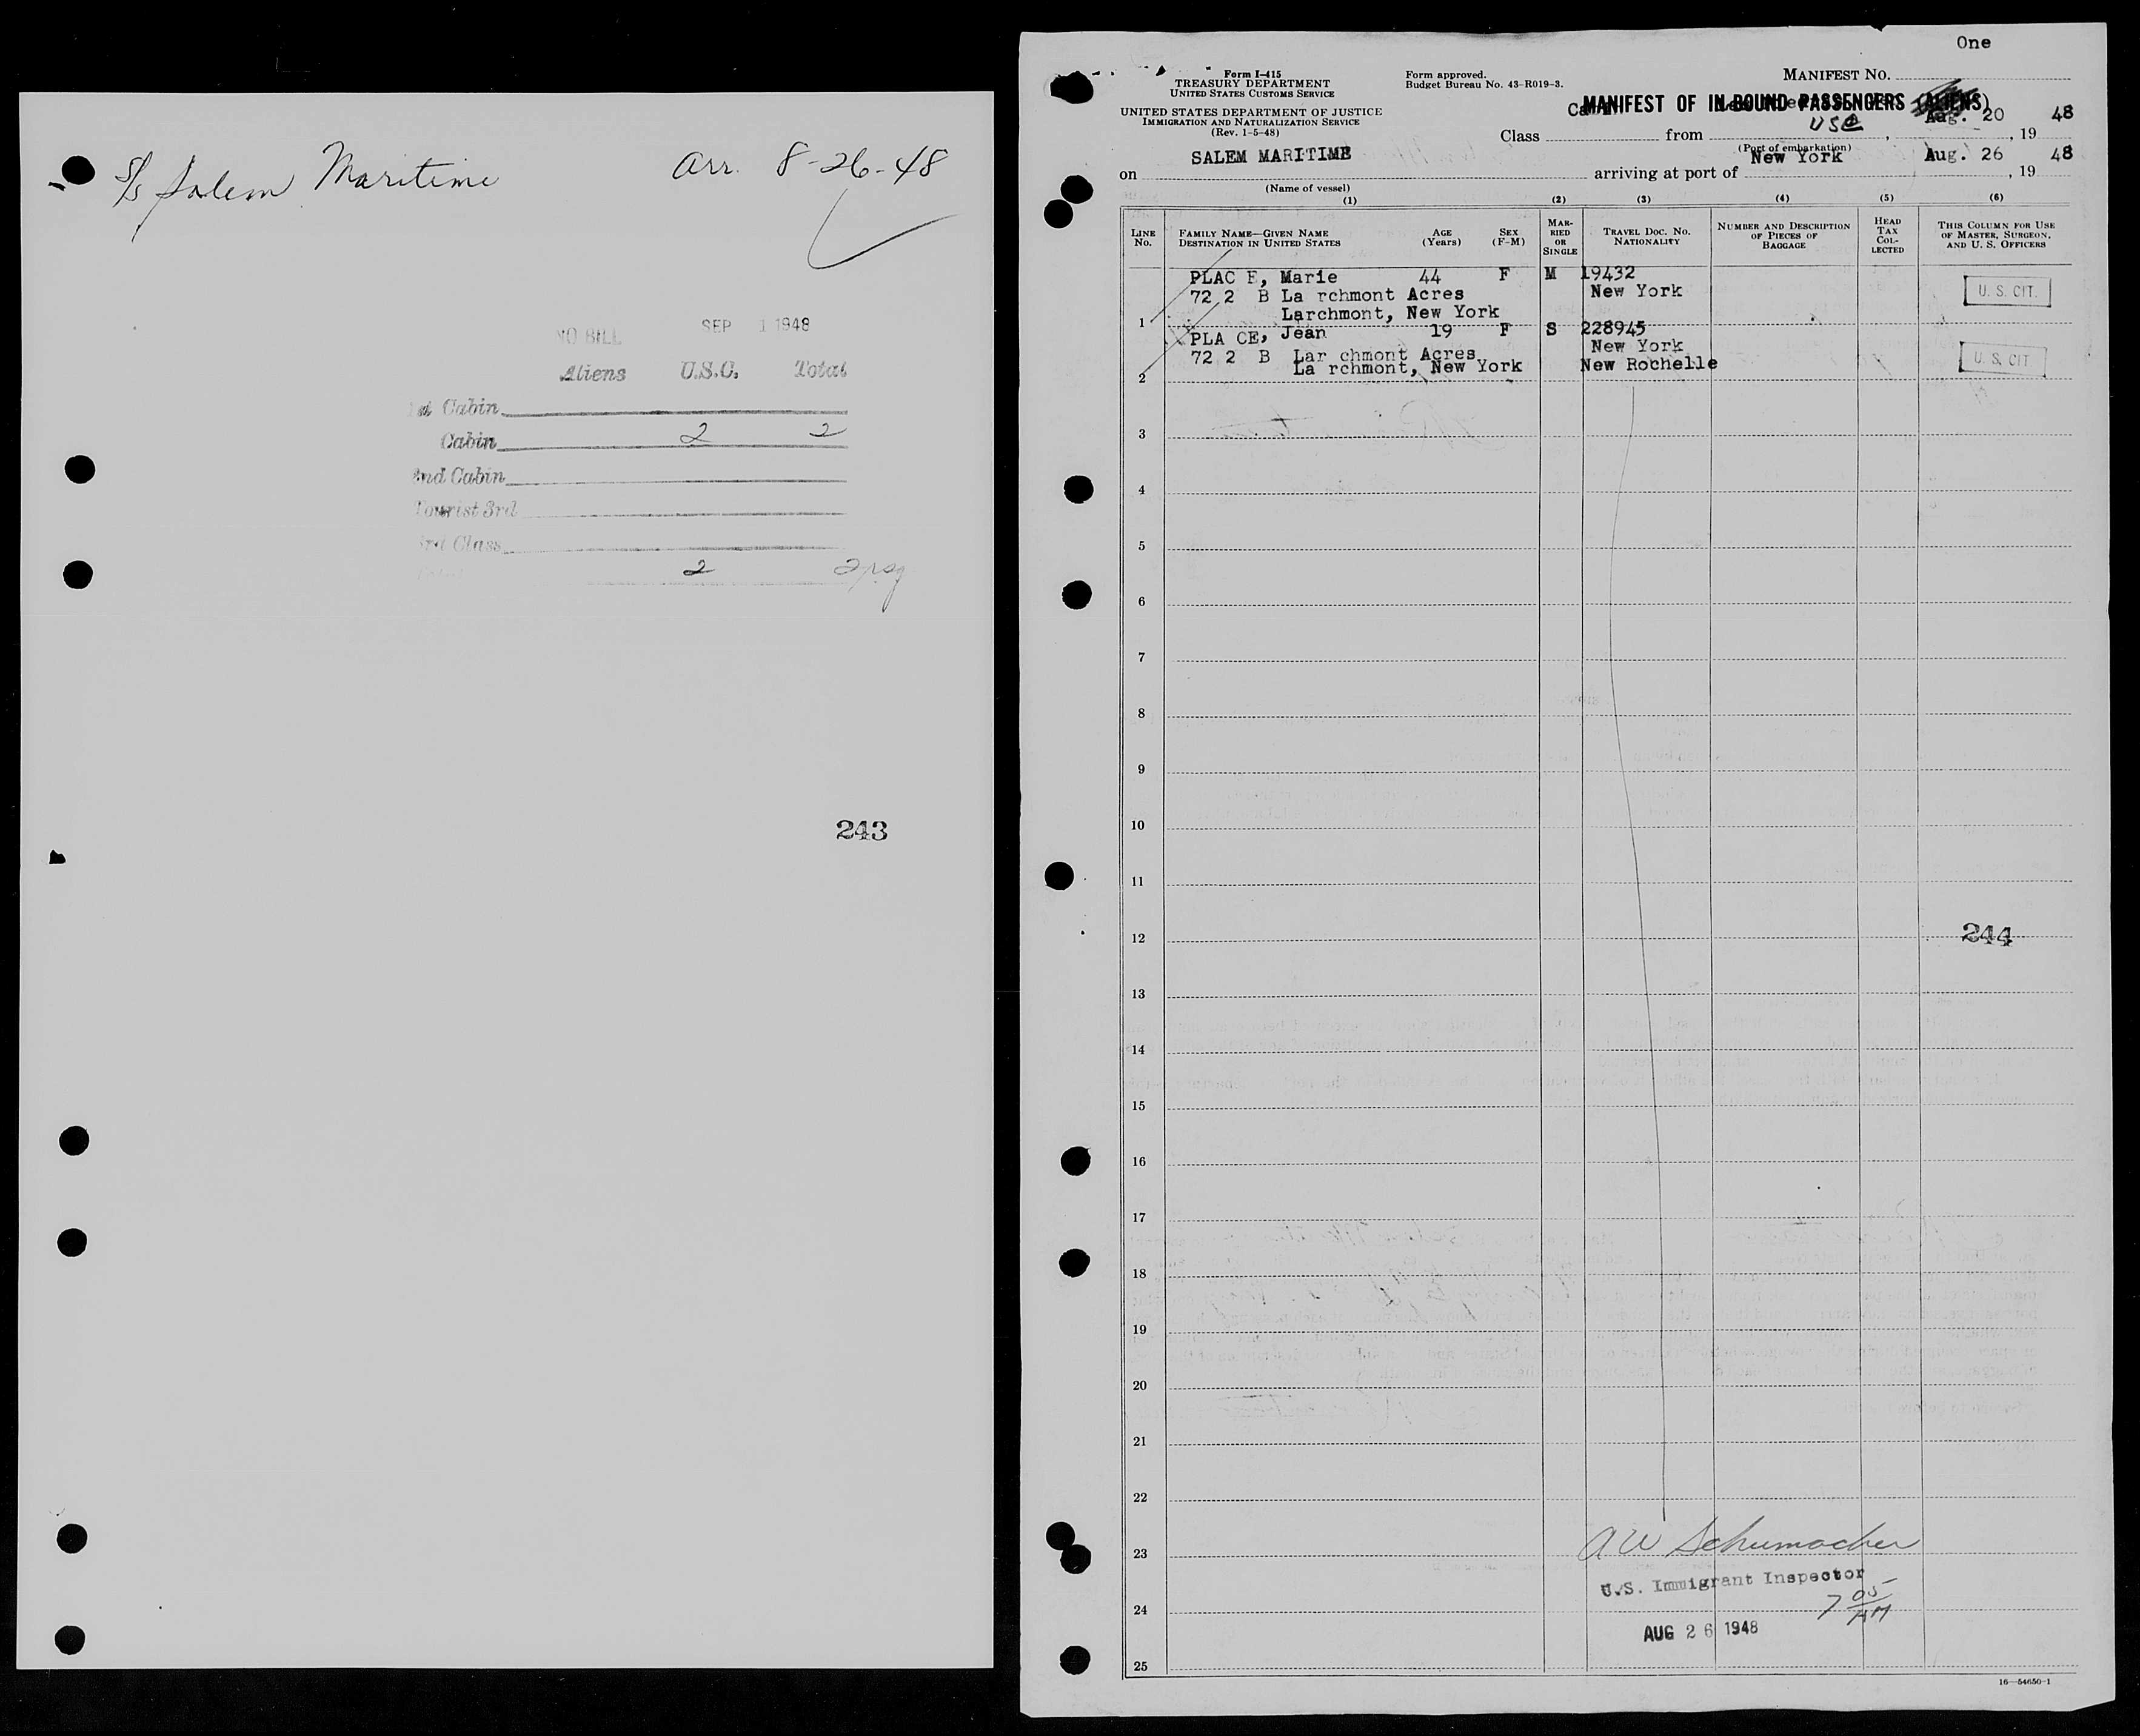 S/s Salem Maritime arr. 8-26-48
NO BILL SEP 1 1948
Aliens U.S.C. Total
Cabin
Cabin 2 2
2nd Cabin
Tourist 3rd
3rd Class
2 2 psg
243
One
Form I-415
TREASURY DEPARTMENT
UNITED STATES CUSTOMS SERVICE
Form approved.
Budget Bureau No. 43-R019-3.
MANIFEST NO.
UNITED STATES DEPARTMENT OF JUSTICE
IMMIGRATION AND NATURALIZATION SERVICE
(Rev. 1-5-48)
MANIFEST OF IN-BOUND PASSENGERS (ALIENS)
USC
Class from , Aug. 20, 19 48
(Port of embarkation)
on SALEM MARITIME arriving at port of New York Aug. 26, 19 48
(Name of vessel)
(1) (2) (3) (4) (5) (6)
LINE No. FAMILY NAME—GIVEN NAME DESTINATION IN UNITED STATES AGE (Years) SEX (F-M) MARRIED OR SINGLE TRAVEL DOC. NO. NATIONALITY NUMBER AND DESCRIPTION OF PIECES OF BAGGAGE HEAD TAX COLLECTED THIS COLUMN FOR USE OF MASTER, SURGEON, AND U. S. OFFICERS
PLAC E, Marie 44 F M 19432
72 2 B La rchmont Acres New York U. S. CIT.
1 Larchmont, New York
PLA CE, Jean 19 F S 228945
72 2 B Lar chmont Acres New York U. S. CIT
2 La rchmont, New York New Rochelle
3
4
5
6
7
8
9
10
11
12 244
13
14
15
16
17
18
19
20
21
22
23 A W Schumacher
U.S. Immigrant Inspector
24 7 05 AM
AUG 26 1948
25
16—54650-1